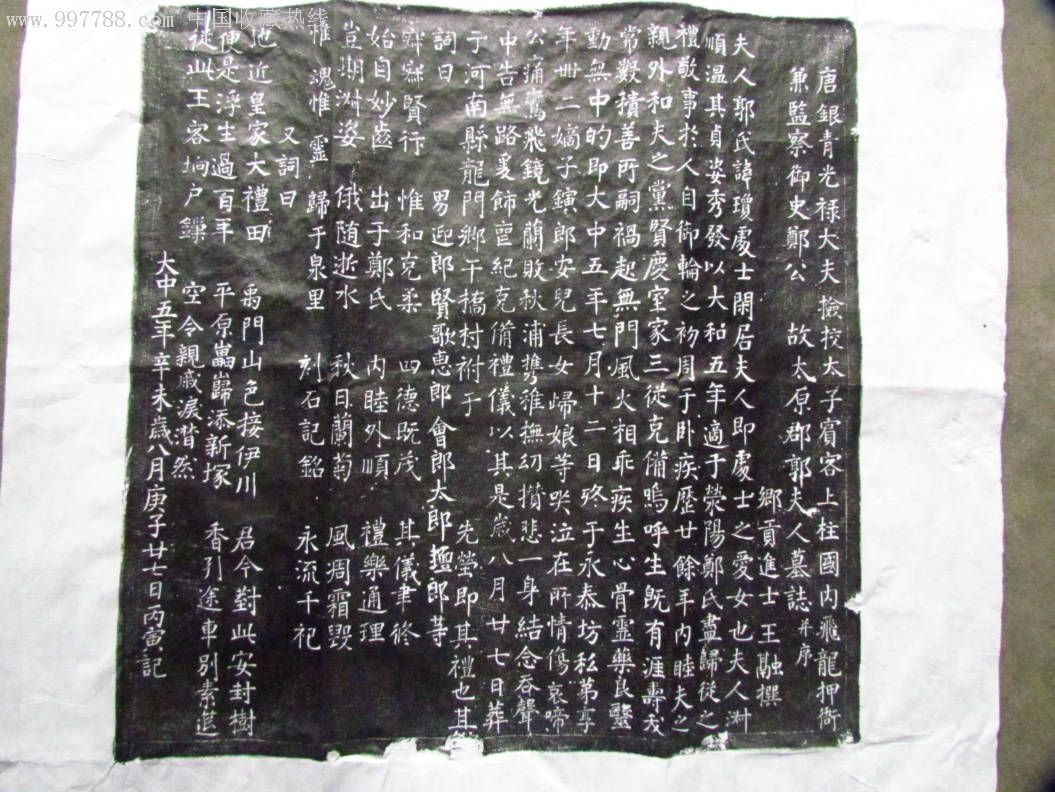 www.997788.com 中国收藏热线
唐銀青光禄大夫撿挍太子賓客上柱國内飛龍押衙
兼監察御史鄭公 故太原郡郭夫人墓誌并序
鄉貢進士王融撰
夫人郭氏諱瓊處士閑居夫人即處士之愛女也夫人淋
順溫其貞姿秀發以大和五年適于滎陽鄭氏盡歸從之
禮敬事於人自御輪之初周于卧疾歷廿餘年内睦夫之
親外和夫之黨賢慶室家三從克備嗚呼生既有涯壽
常數積善所嗣禍起無門風火相乖疾生心骨靈藥良毉
動無中的即大中五年七月十二日終于永泰坊私苐享
年卌二嫡子鐼郎安兒長女婦娘等哭泣在所情傷哀啼
公痛鸞飛鏡光蘭敗秋浦攜稚撫幼攢悲一身結念吞聲
中告無路爰飾 紀克備禮儀以其是歲八月廿七日葬
于河南縣龍門鄉午橋村祔于 先塋即其禮也其
詞曰 男迎郎賢歌惠郎會郎太郎 郎等
窈窕賢行 惟和克柔 四德既茂 其儀聿修
始自妙齒 出于鄭氏 内睦外順 禮樂通理
豈期淋姿 俄随逝水 秋日蘭菊 風凋霜毀
惟魂惟靈 歸于泉里 刻石記銘 永流千祀
又詞曰
地近皇家大禮田 禹門山色接伊川 君今對此安封樹
便是浮生過百年 平原 歸添新塚 香引途車别素
從此王客坰户 空令親戚淚潸然
大中五年辛未歲八月庚子廿七日丙寅記